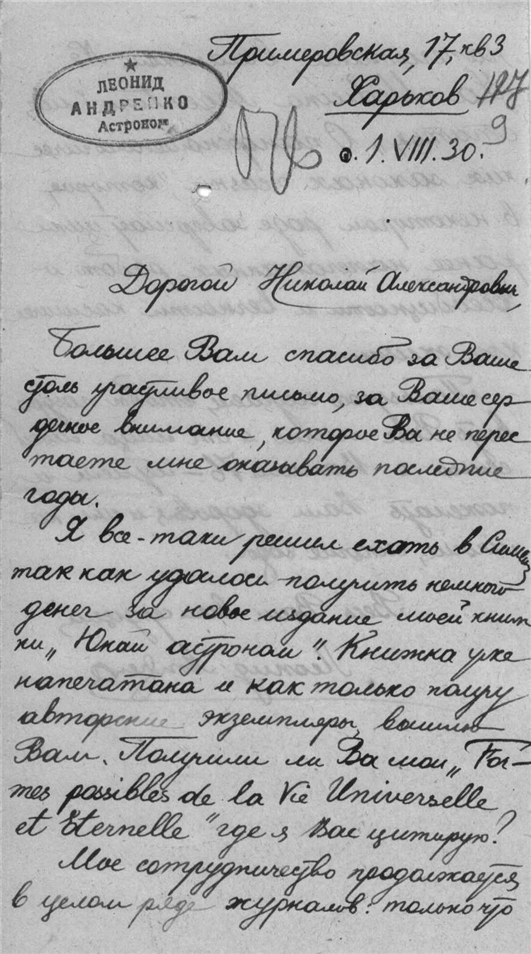 Примеровская, 17, кв 3
ЛЕОНИД
АНДРЕНКО
Астроном
Харьков
1. VIII. 30.
Дорогой Николай Александрович,
Большее Вам спасибо за Ваше
столь участливое письмо, за Ваше сер
дечное внимание, которое Вы не перес
таете мне оказывать последние
годы.
Я все-таки решил ехать в
так как удалось получить немного
денег за новое издание моей книж
ки „Юный астроном". Книжка уже
напечатана и как только получу
авторские экземпляры, вышлю
Вам. Получили ли Вы мои „For-
mes possibles de la Vie Universelle
et Eternelle" где я Вас цитирую?
Мое сотрудничество продолжается
в целом ряде журналов: только что